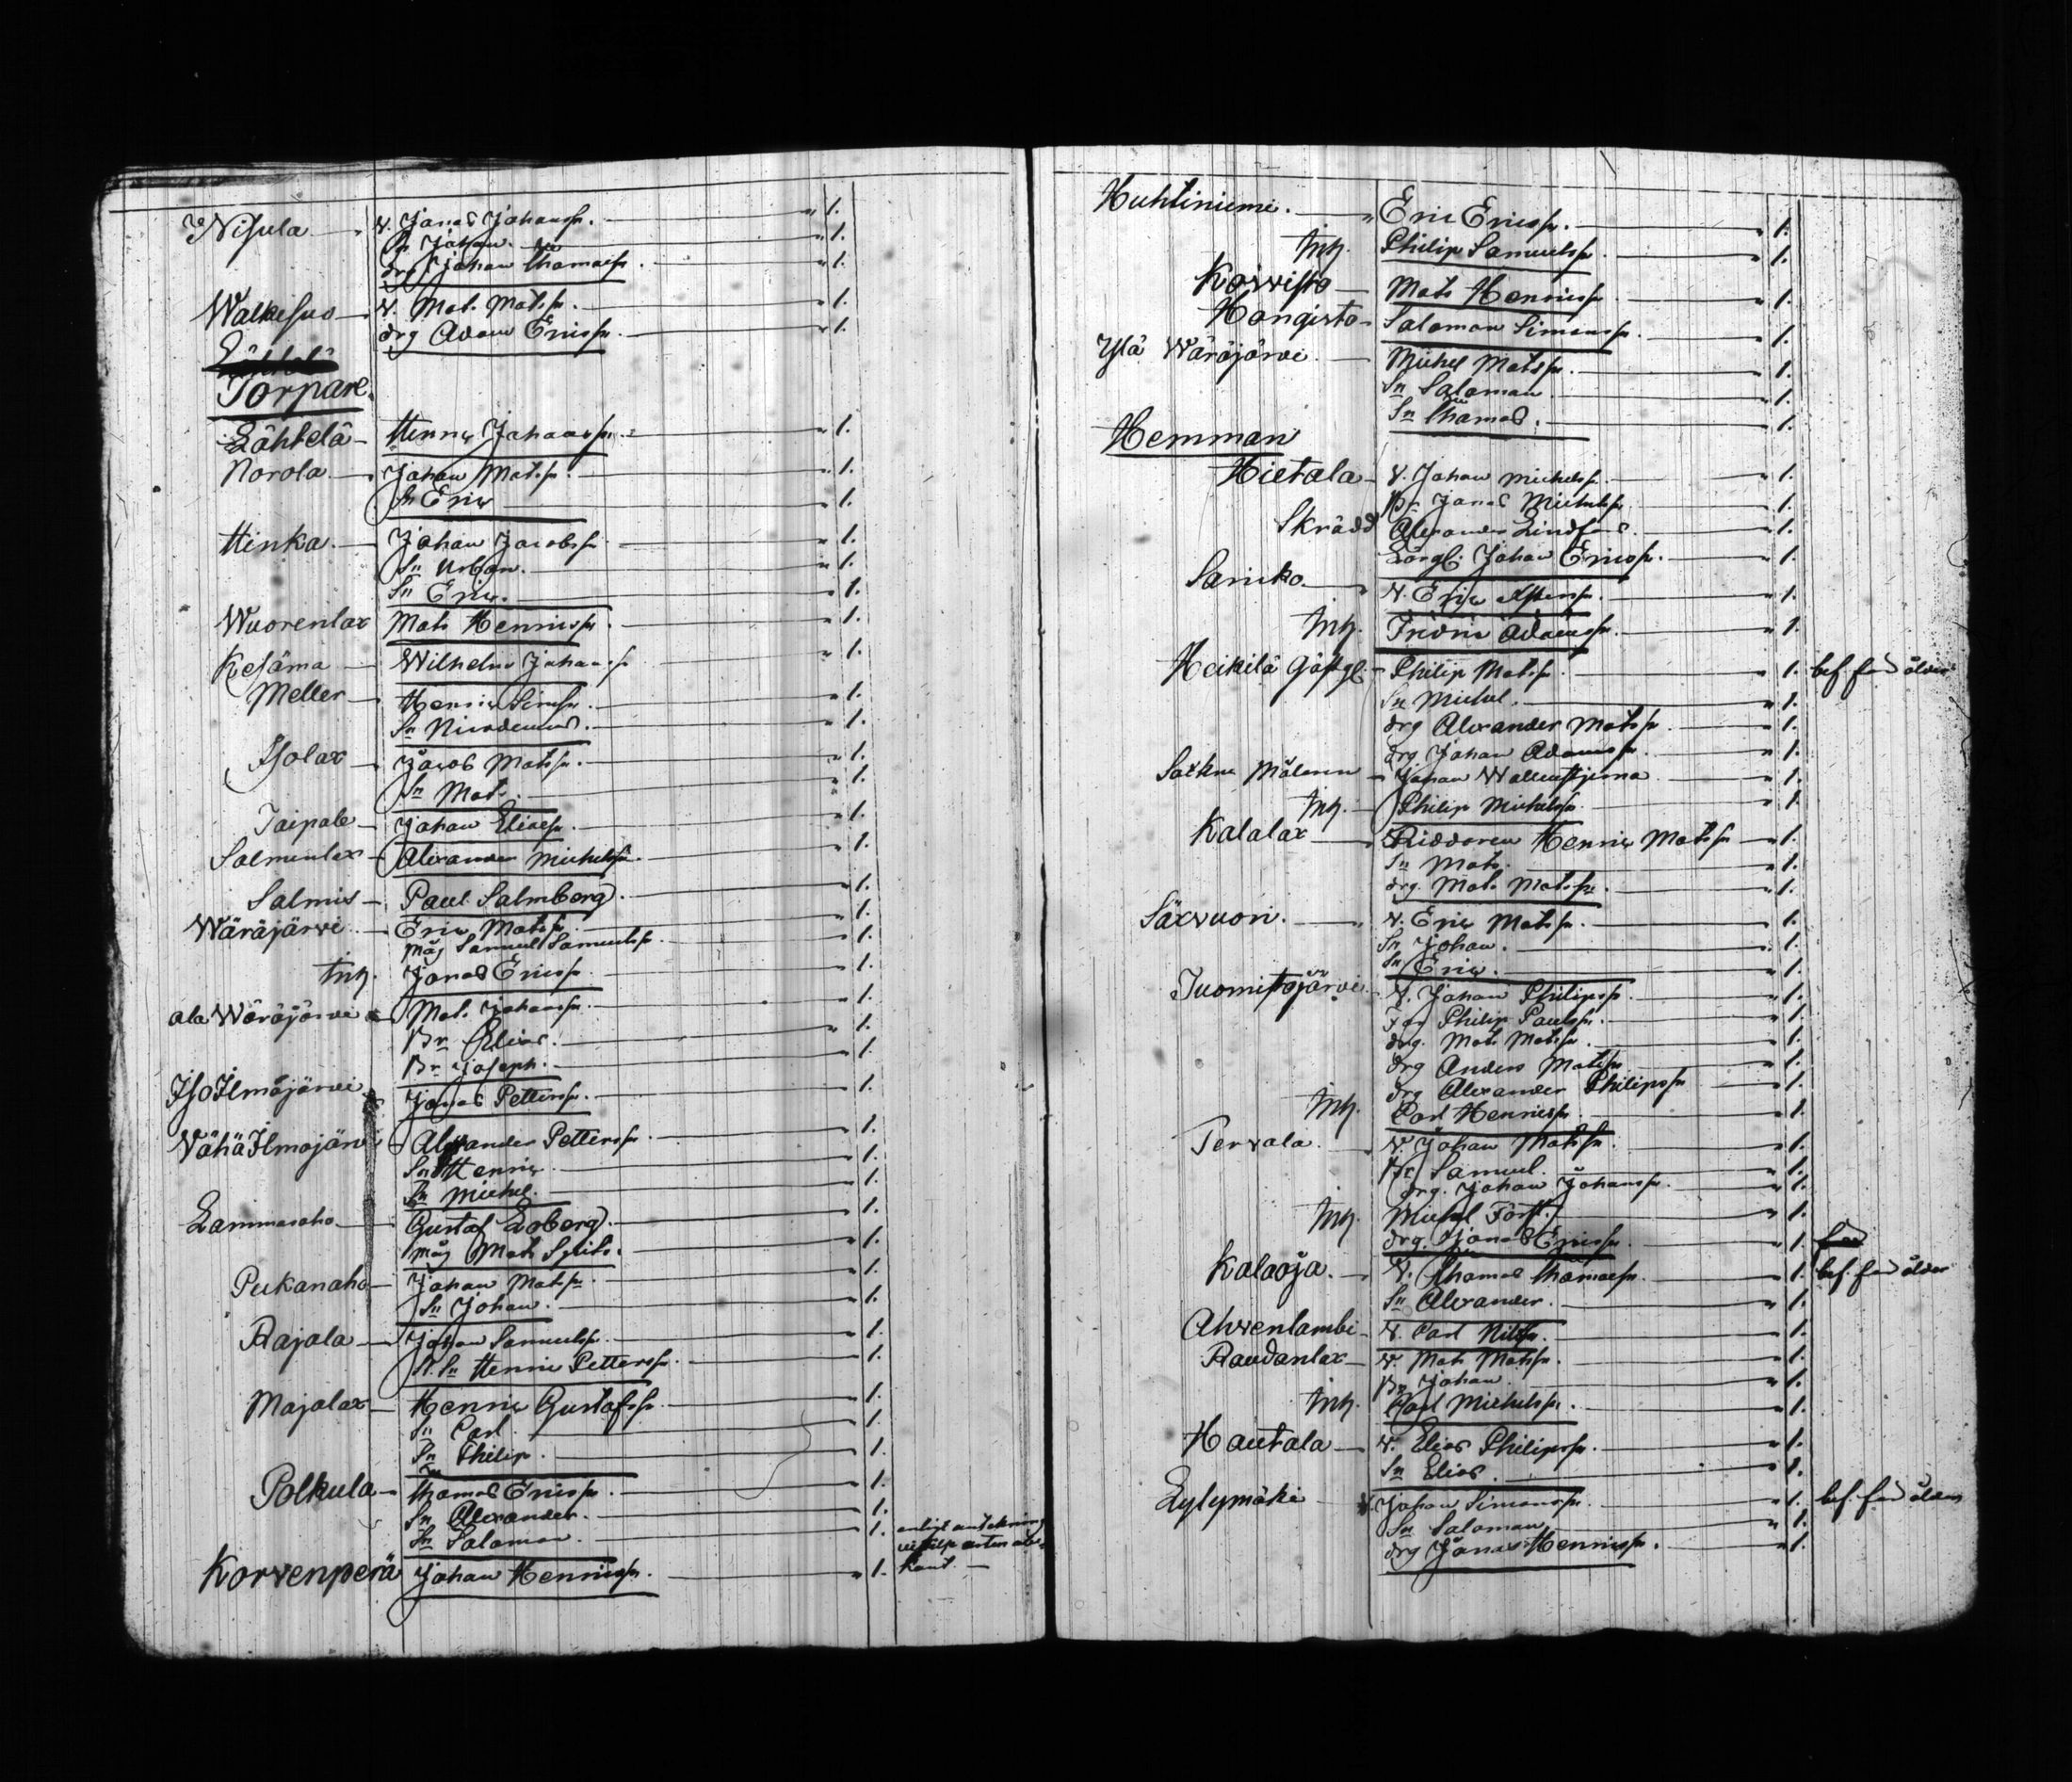 Nisula v. Jonas Johanss. " 1.
Sn Johan. " 1.
drg Johan Thomass. " 1.
Walkesuo v. Mat. Matss. " 1.
drg Adam Ericss. " 1.
Lähtelä
Torpare.
Lähtelä Henric Johanss. " 1.
Norola Johan Matss. " 1.
Sn Eric " 1.
Hinka Johan Jacobss. " 1.
Sn Urban. " 1.
Sn Eric. " 1.
Wuorenlax Mats Henricss. " 1.
Kesäma Wilhelm Johanss. " 1.
Meller Henric Simss. " 1.
Sn Nicodemus. " 1.
Isolax Jacob Matss. " 1.
Sn Mats. " 1.
Taipale Johan Eliass. " 1.
Salmenlax Alexander Michelss. " 1.
Salmis Paul Salmberg. " 1.
Wäräjärwi Eric Matss. " 1.
Måg Samuel Samuelss. " 1.
Inh. Jonas Ericss. " 1.
ala Wäräjärwi Mat. Johanss. " 1.
Br Elias. " 1.
Br Joseph. " 1.
Iso Ilmäjärwi Jonas Petterss. " 1.
Vähä Ilmajärwi Alexander Petterss. " 1.
Sn Henric. " 1.
Sn Michel. " 1.
Lammasaho Gustaf Loberg. " 1.
Måg Mats Spits. " 1.
Pukanaho Johan Matss. " 1.
Sn Johan. " 1.
Rajala Johan Samuelss. " 1.
St. Sn Henric Petterss. " 1.
Majalax Henric Gustafss. " 1.
Sn Carl. " 1.
Sn Philip. " 1.
Polkula Thomas Ericss. " 1.
Sn Alexander. " 1.
Sn Salomon. " 1. enligt anteckning
Korvenperä Johan Henricss. " 1.
Huhtiniemi. Eric Ericss. " 1.
Inh. Philip Samuelss. " 1.
Koivisto Mats Henricss. " 1.
Hongisto Salomon Simonss. " 1.
Ylä Wäräjärwi Michel Matss. " 1.
Sn Salomon. " 1.
Sn Thomas. " 1.
Hemman
Hietala v. Johan Michelss. " 1.
Br Jonas Michelss. " 1.
Skrädd Alexander Lindfors. " 1.
Lärgl. Johan Ericss. " 1.
Sariko v. Eric " 1.
Inh. Fridric Adamss. " 1.
Heikilä Gästg. Philip Matss. " 1. bef. for ålder
Sn Michel. " 1.
drg Alexander Matss. " 1.
drg Johan Adamss. " 1.
Målaren Johan Wallenstjerna " 1.
Inh. Philip Michelss. " 1.
Kalalax Riddaren Henric Matss. " 1.
Sn Mats. " 1.
drg. Mats Matss. " 1.
Säxvuori. v. Eric Matss. " 1.
Sn Johan. " 1.
Sn Eric. " 1.
Tuomistojärwi v. Johan Philipss. " 1.
Far Philip Paulss. " 1.
drg. Mats Matss. " 1.
drg Anders Matss. " 1.
drg Alexander Philipss. " 1.
Inh. Carl Henricss. " 1.
Tervala v. Johan Matss. " 1.
Br Samuel. " 1.
drg. Johan Johanss. " 1.
Inh. Michel Forss. " 1.
drg. Jonas Ericss. " 1.
Kalaoja. v. Thomas Thomass. " 1. bef. for ålder
Sn Alexander. " 1.
Ahvenlambi v. Carl Nilss. " 1.
Raudanlax v. Mats Matss. " 1.
Br Johan. " 1.
Inh. Carl Michelss. " 1.
Hautala v. Elias Philipss. " 1.
Sn Elias. " 1.
Lylymäki Johan Simonss. " 1. bef. for ålder
Sn Salomon " 1.
drg Jonas Henricss. " 1.